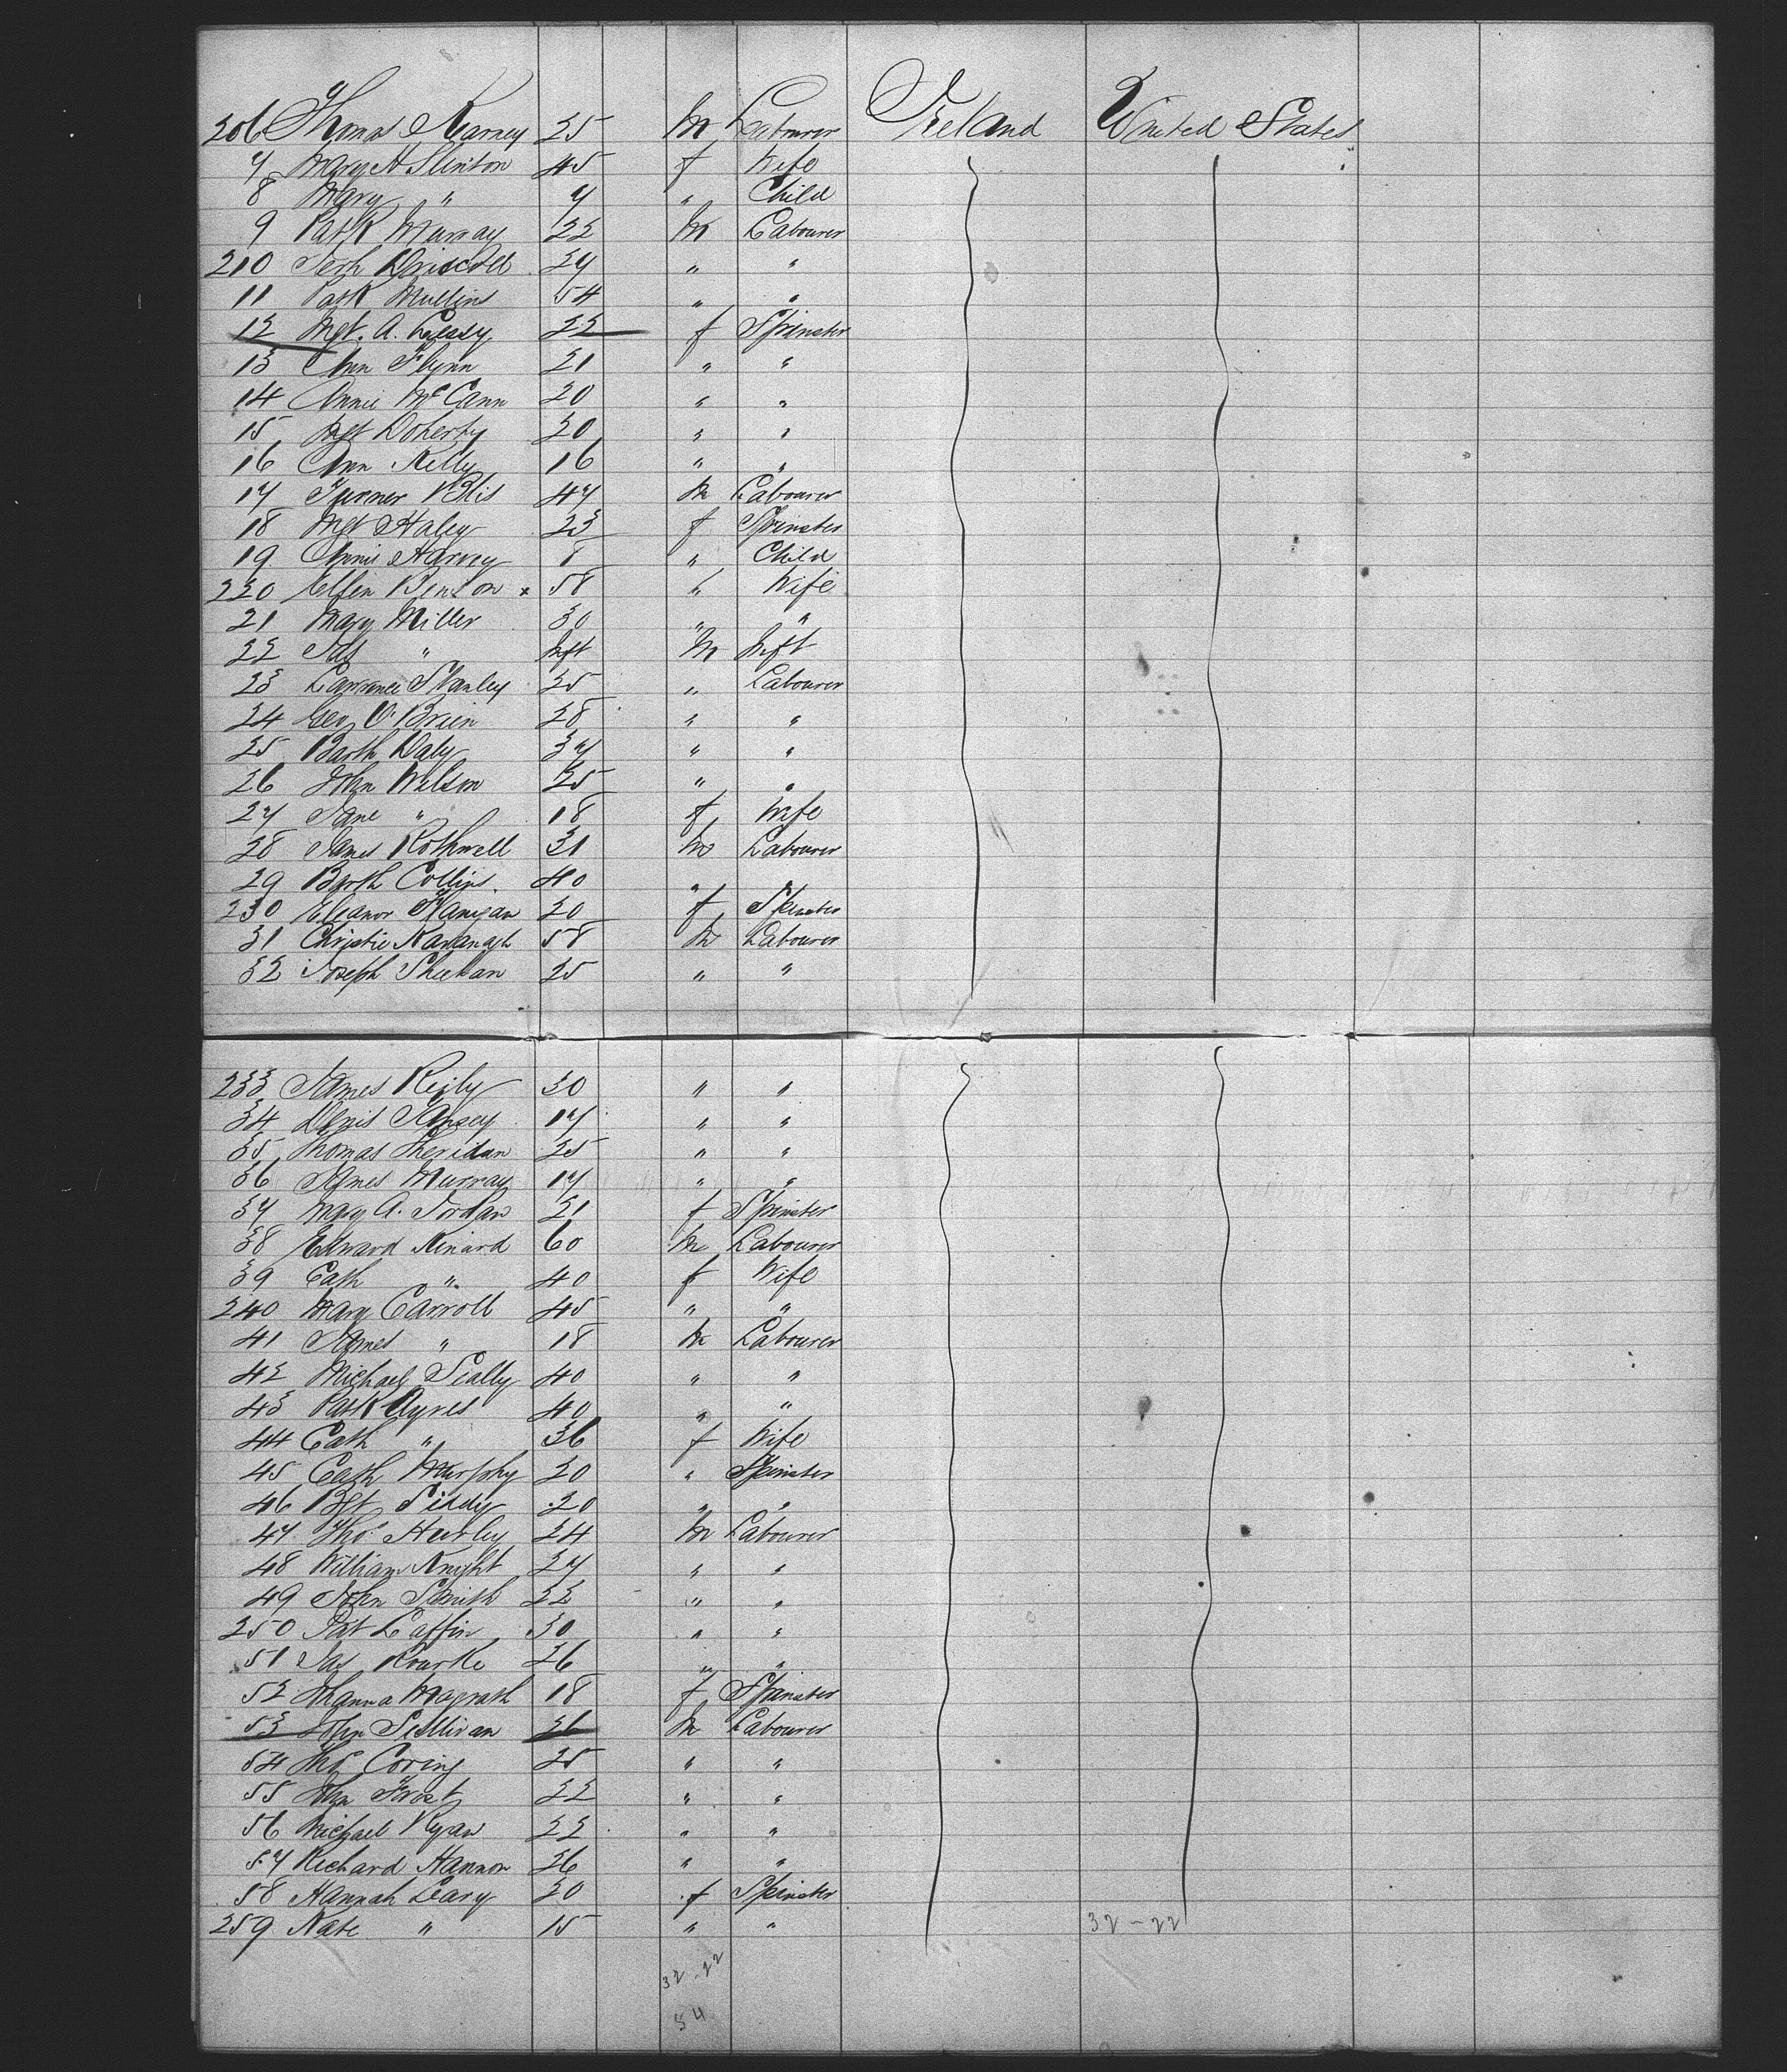 206 Thomas Karney 25 M Labourer Ireland United States
7 Mary A Slinton 45 f Wife
8 Mary " 7 " Child
9 Patk Murray 22 M Labourer
210 Jerh Driscoll 27 " "
11 Patk Mullins 54 " "
12 Mgt. A. 22 f Spinster
13 Ann Flynn 21 " "
14 Annie McCann 20 " "
15 Mgt Doherty 20 " "
16 Ann Kelly 16 " "
17 Turner 47 M Labourer
18 Mgt Haley 23 f Spinster
19 Annie Harvey 8 " Child
220 Ellen Benson x 58 " Wife
21 Mary Miller 30 " "
22 Jas " Inft M Inft
23 Lawrence Stanley 25 " Labourer
24 Geo O'Brien 28 " "
25 Barth Daly 37 " "
26 John Wilson 25 " "
27 Jane " 18 f Wife
28 James Rothwell 31 M Labourer
29 Barth Collins 40 " "
230 Eleanor Flanigan 20 f Spinster
31 Christie Kavanagh 58 M Labourer
32 Joseph Sheehan 25 " "
233 James Reily 30 " "
34 Denis 17 " "
35 Thomas Sheridan 25 " "
36 James Murray 17 " "
37 Mary A. Jordan 21 f Spinster
38 Edward Kinard 60 M Labourer
39 Cath " 40 f Wife
240 Mary Carroll 45 " "
41 James " 18 M Labourer
42 Michael Scally 40 " "
43 Patk Ayres 40 " "
44 Cath " 36 f Wife
45 Cath Murphy 20 " Spinster
46 Bgt 20 " "
47 Thos Hurley 24 M Labourer
48 William Knight 27 " "
49 John Smith 22 " "
250 Pat Laffin 30 " "
51 Jas Rourke 26 " "
52 Johanna Magrath 18 f Spinster
53 John Sullivan 26 M Labourer
54 Thos Coring 25 " "
55 John Frost 22 " "
56 Michael Ryan 22 " "
57 Richard Hannon 26 " "
58 Hannah Leary 20 f Spinster
259 Kate " 15 " " 32-22
32-22
54